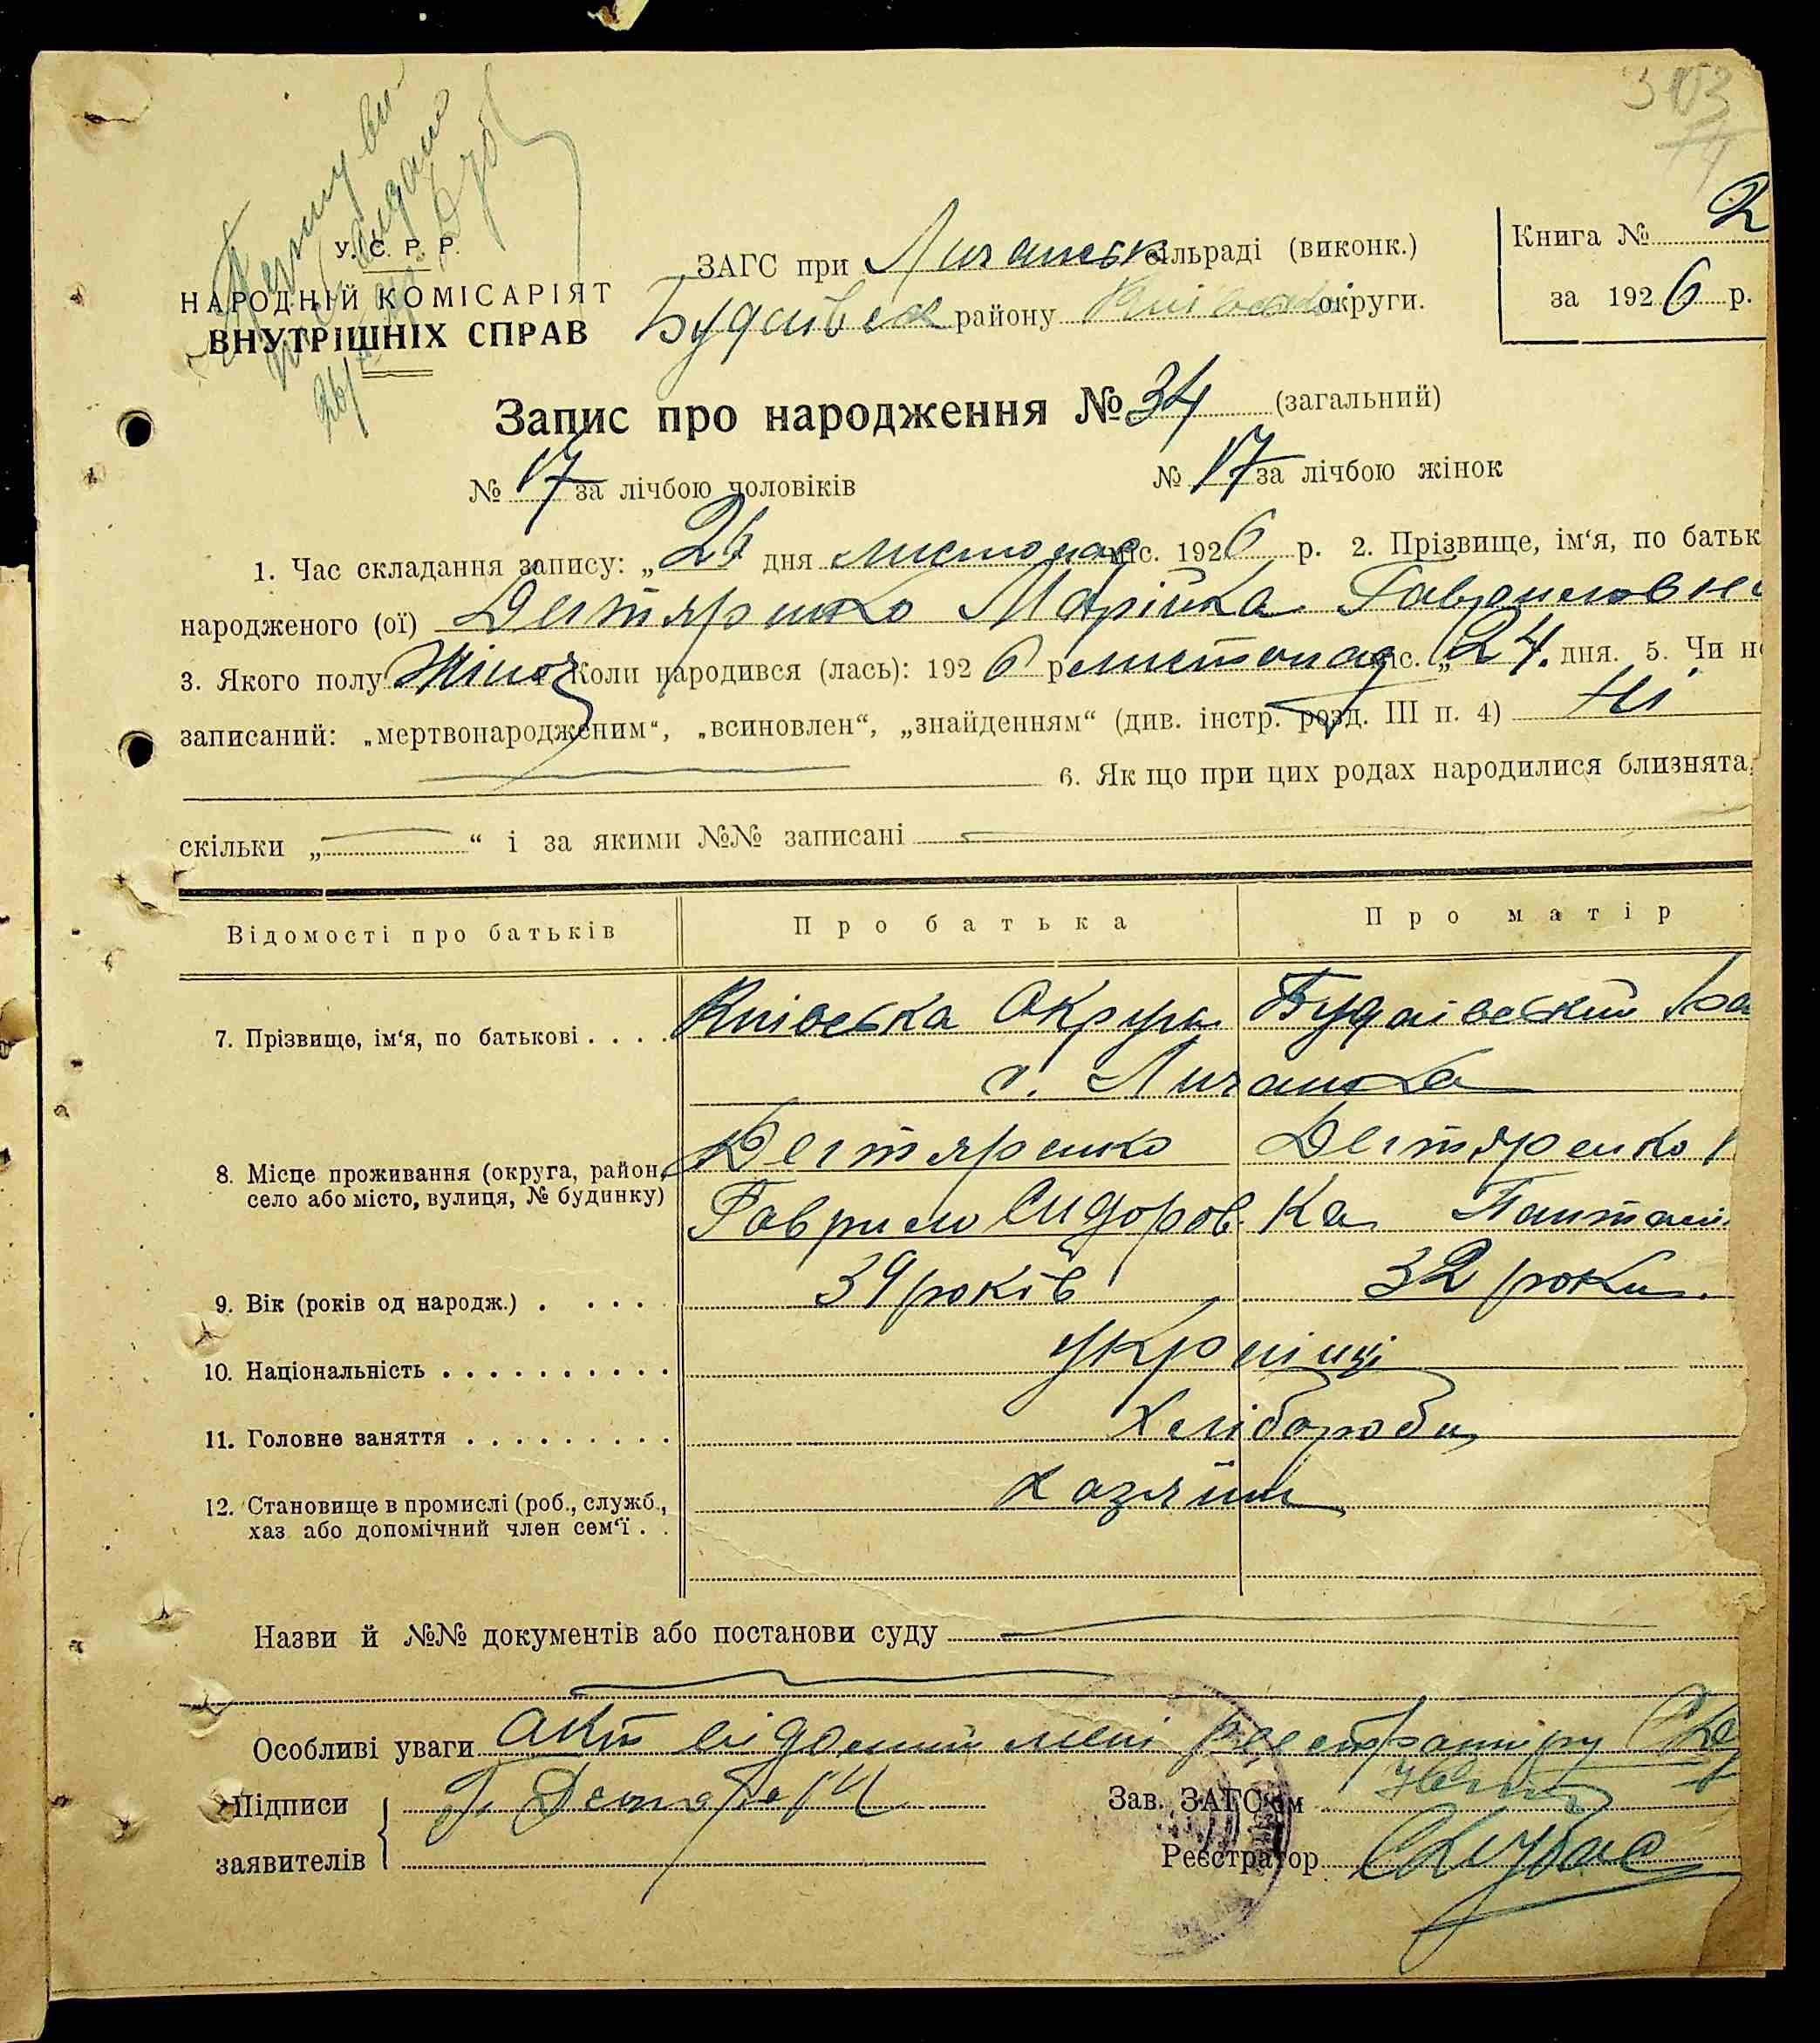 303
У. С. Р. Р.
НАРОДНІЙ КОМІСАРІЯТ
ВНУТРІШНІХ СПРАВ
ЗАГС при Личанськ сільраді (виконк.)
Будаївськ району Київськ округи.
Книга № 2
за 1926 р.
Запис про народження № 34 (загальний)
№ 17 за лічбою чоловіків № 17 за лічбою жінок
1. Час складання запису: „26 дня листопад міс. 1926 р. 2. Прізвище, ім‘я, по батьк
народженого (ої) Дегтяренко Марійка Гавриловна
3. Якого полу Жіноч Коли народився (лась): 1926 р листопад міс. „24. дня. 5. Чи не
записаний: „мертвонародженим“, „всиновлен“, „знайденням“ (див. інстр. розд. III п. 4) Ні
6. Як що при цих родах народилися близнята,
скільки „ “ і за якими №№ записані
Відомості про батьків Про батька Про матір
7. Прізвище, ім‘я, по батькові . . . . Київська Округа Будаівський Ра
с. Личанка
8. Місце проживання (округа, район, Дегтяренко Дегтяренко
село або місто, вулиця, № будинку) Гаврило Сидоров. ка
9. Вік (років од народж.) . . . . . 39 років 32 роки.
10. Національність . . . . . . . . . . Українці
11. Головне заняття . . . . . . . . . Хлібороби
12. Становище в промислі (роб., служб., хазяїни
хаз або допомічний член сем‘ї . .
Назви й №№ документів або постанови суду
Особливі уваги Акт відомий мені реєстратіру
Підписи Г. Зав. ЗАГС‘ом
заявителів Реєстратор